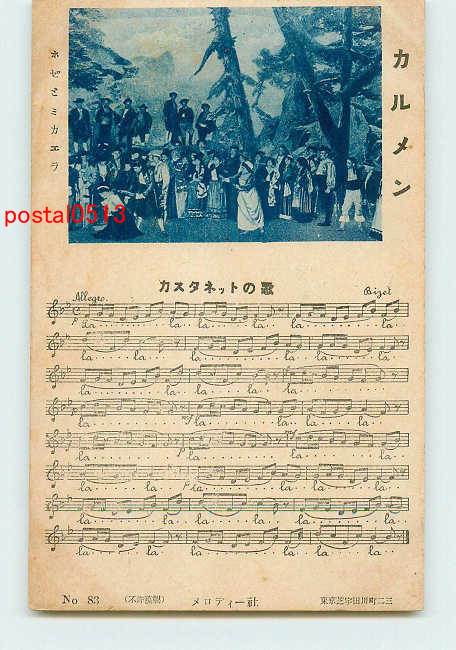 カルメン
ホゼとミカエラ
postal0513
カスタネットの歌
Allegro.
Bizet
la la la la la
la la la la
la la la la
la la la la
la la la la
la la la la la
la la la la la
la la la la la
No 83 (不許複製) メロディー社 東京芝宇田川町二三